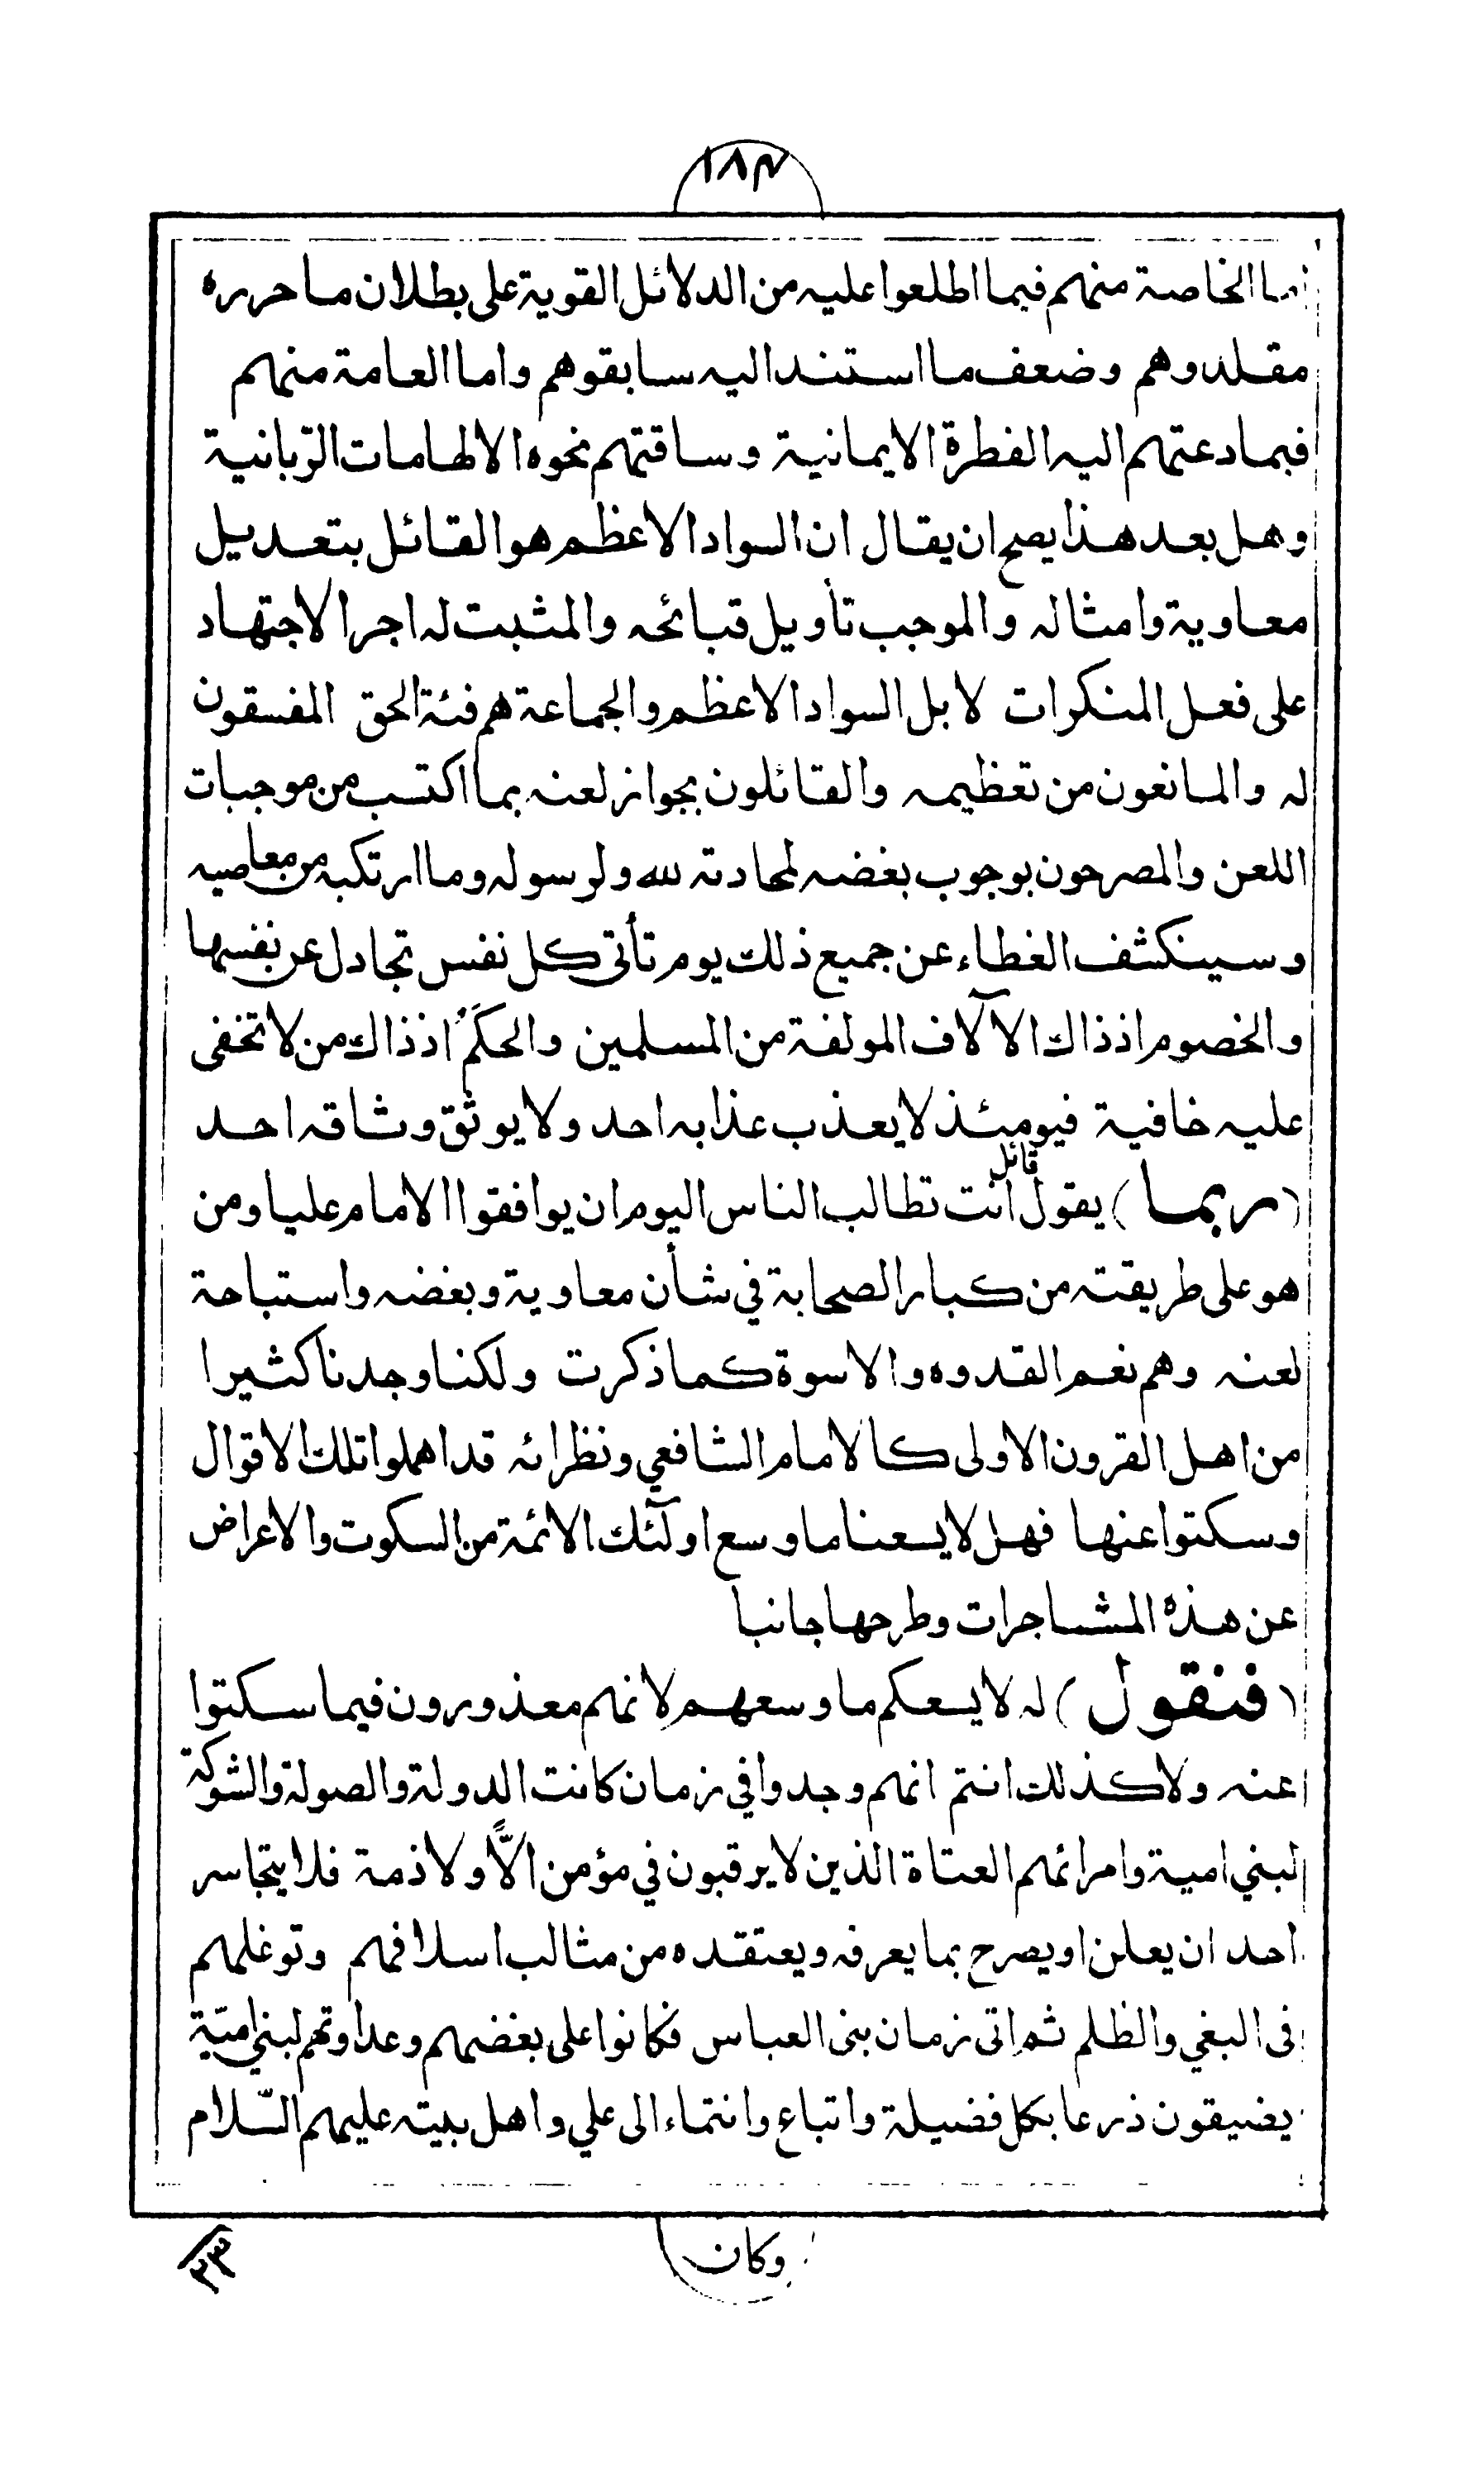 ١٨٣
اما الخاصة منهم فيما اطلعوا عليه من الدلائل القوية على بطلان ما حرره
مقلدوهم وضعف ما استند اليه سابقوهم واما العامة منهم
فبما دعتهم اليه الفطرة الايمانية وساقتهم نحوه الالهامات الرّبانية
وهل بعد هذا يصح ان يقال ان السواد الاعظم هو القائل بتعديل
معاوية وامثاله والموجب تأويل قبائحه والمثبت له اجر الاجتهاد
على فعل المنكرات لا بل السواد الاعظم والجماعة هم فئة الحق المفسقون
له والمانعون من تعظيمه والقائلون بجواز لعنه بما اكتسب من موجبات
اللعن والمصرحون بوجوب بغضه لمحادته لله ولرسوله وما ارتكبه من معاصيه
وسينكشف الغطاء عن جميع ذلك يوم تأتى كل نفس تجادل عن نفسها
والخصوم اذ ذاك الآلاف المولفة من المسلمين والحكَمُ اذ ذاك من لا تخفى
عليه خافية فيومئذ لا يعذب عذابه احد ولا يوثق وثاقه احد
(ربما) يقول قائل انت تطالب الناس اليوم ان يوافقوا الامام عليا ومن
هو على طريقته من كبار الصحابة في شأن معاوية وبغضه واستباحة
لعنه وهم نعم القدوه والاسوة كما ذكرت ولكنا وجدنا كثيرا
من اهل القرون الاولى كالامام الشافعي ونظرائه قد اهملوا تلك الاقوال
وسكتوا عنها فهل لا يسعنا ما وسع اولٓئك الائمة من السكوت والاعراض
عن هذه المشاجرات وطرحها جانبا
(فنقول) له لا يسعكم ما وسعهم لانهم معذورون فيما سكتوا
عنه ولا كذلك انتم انهم وجدوا في زمان كانت الدولة والصولة والشوكة
لبني امية وامرائهم العتاة الذين لا يرقبون في مؤمن الاًّ ولا ذمة فلا يتجاسر
احد ان يعلن او يصرح بما يعرفه ويعتقده من مثالب اسلافهم وتوغلهم
فى البغي والظلم ثم اتى زمان بنى العباس فكانوا على بغضهم وعداوتهم لبني اميّة
يضيقون ذرعا بكل فضيلة واتباع وانتماء الى علي واهل بيته عليهم السّلام
وكان
٢٣